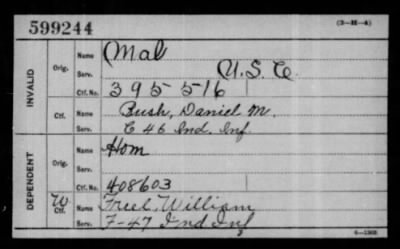 599244
(3-H-A)
INVALID
Orig.
Name Mal
Serv. U.S.C.
Ctf. No. 395516
Ctf.
Name Bush, Daniel M.
Serv. C 46 Ind. Inf
DEPENDENT
Orig.
Name Hom
Serv.
Ctf. No. 408603
W Ctf.
Name Freel, William
Serv. F-47 Ind Inf